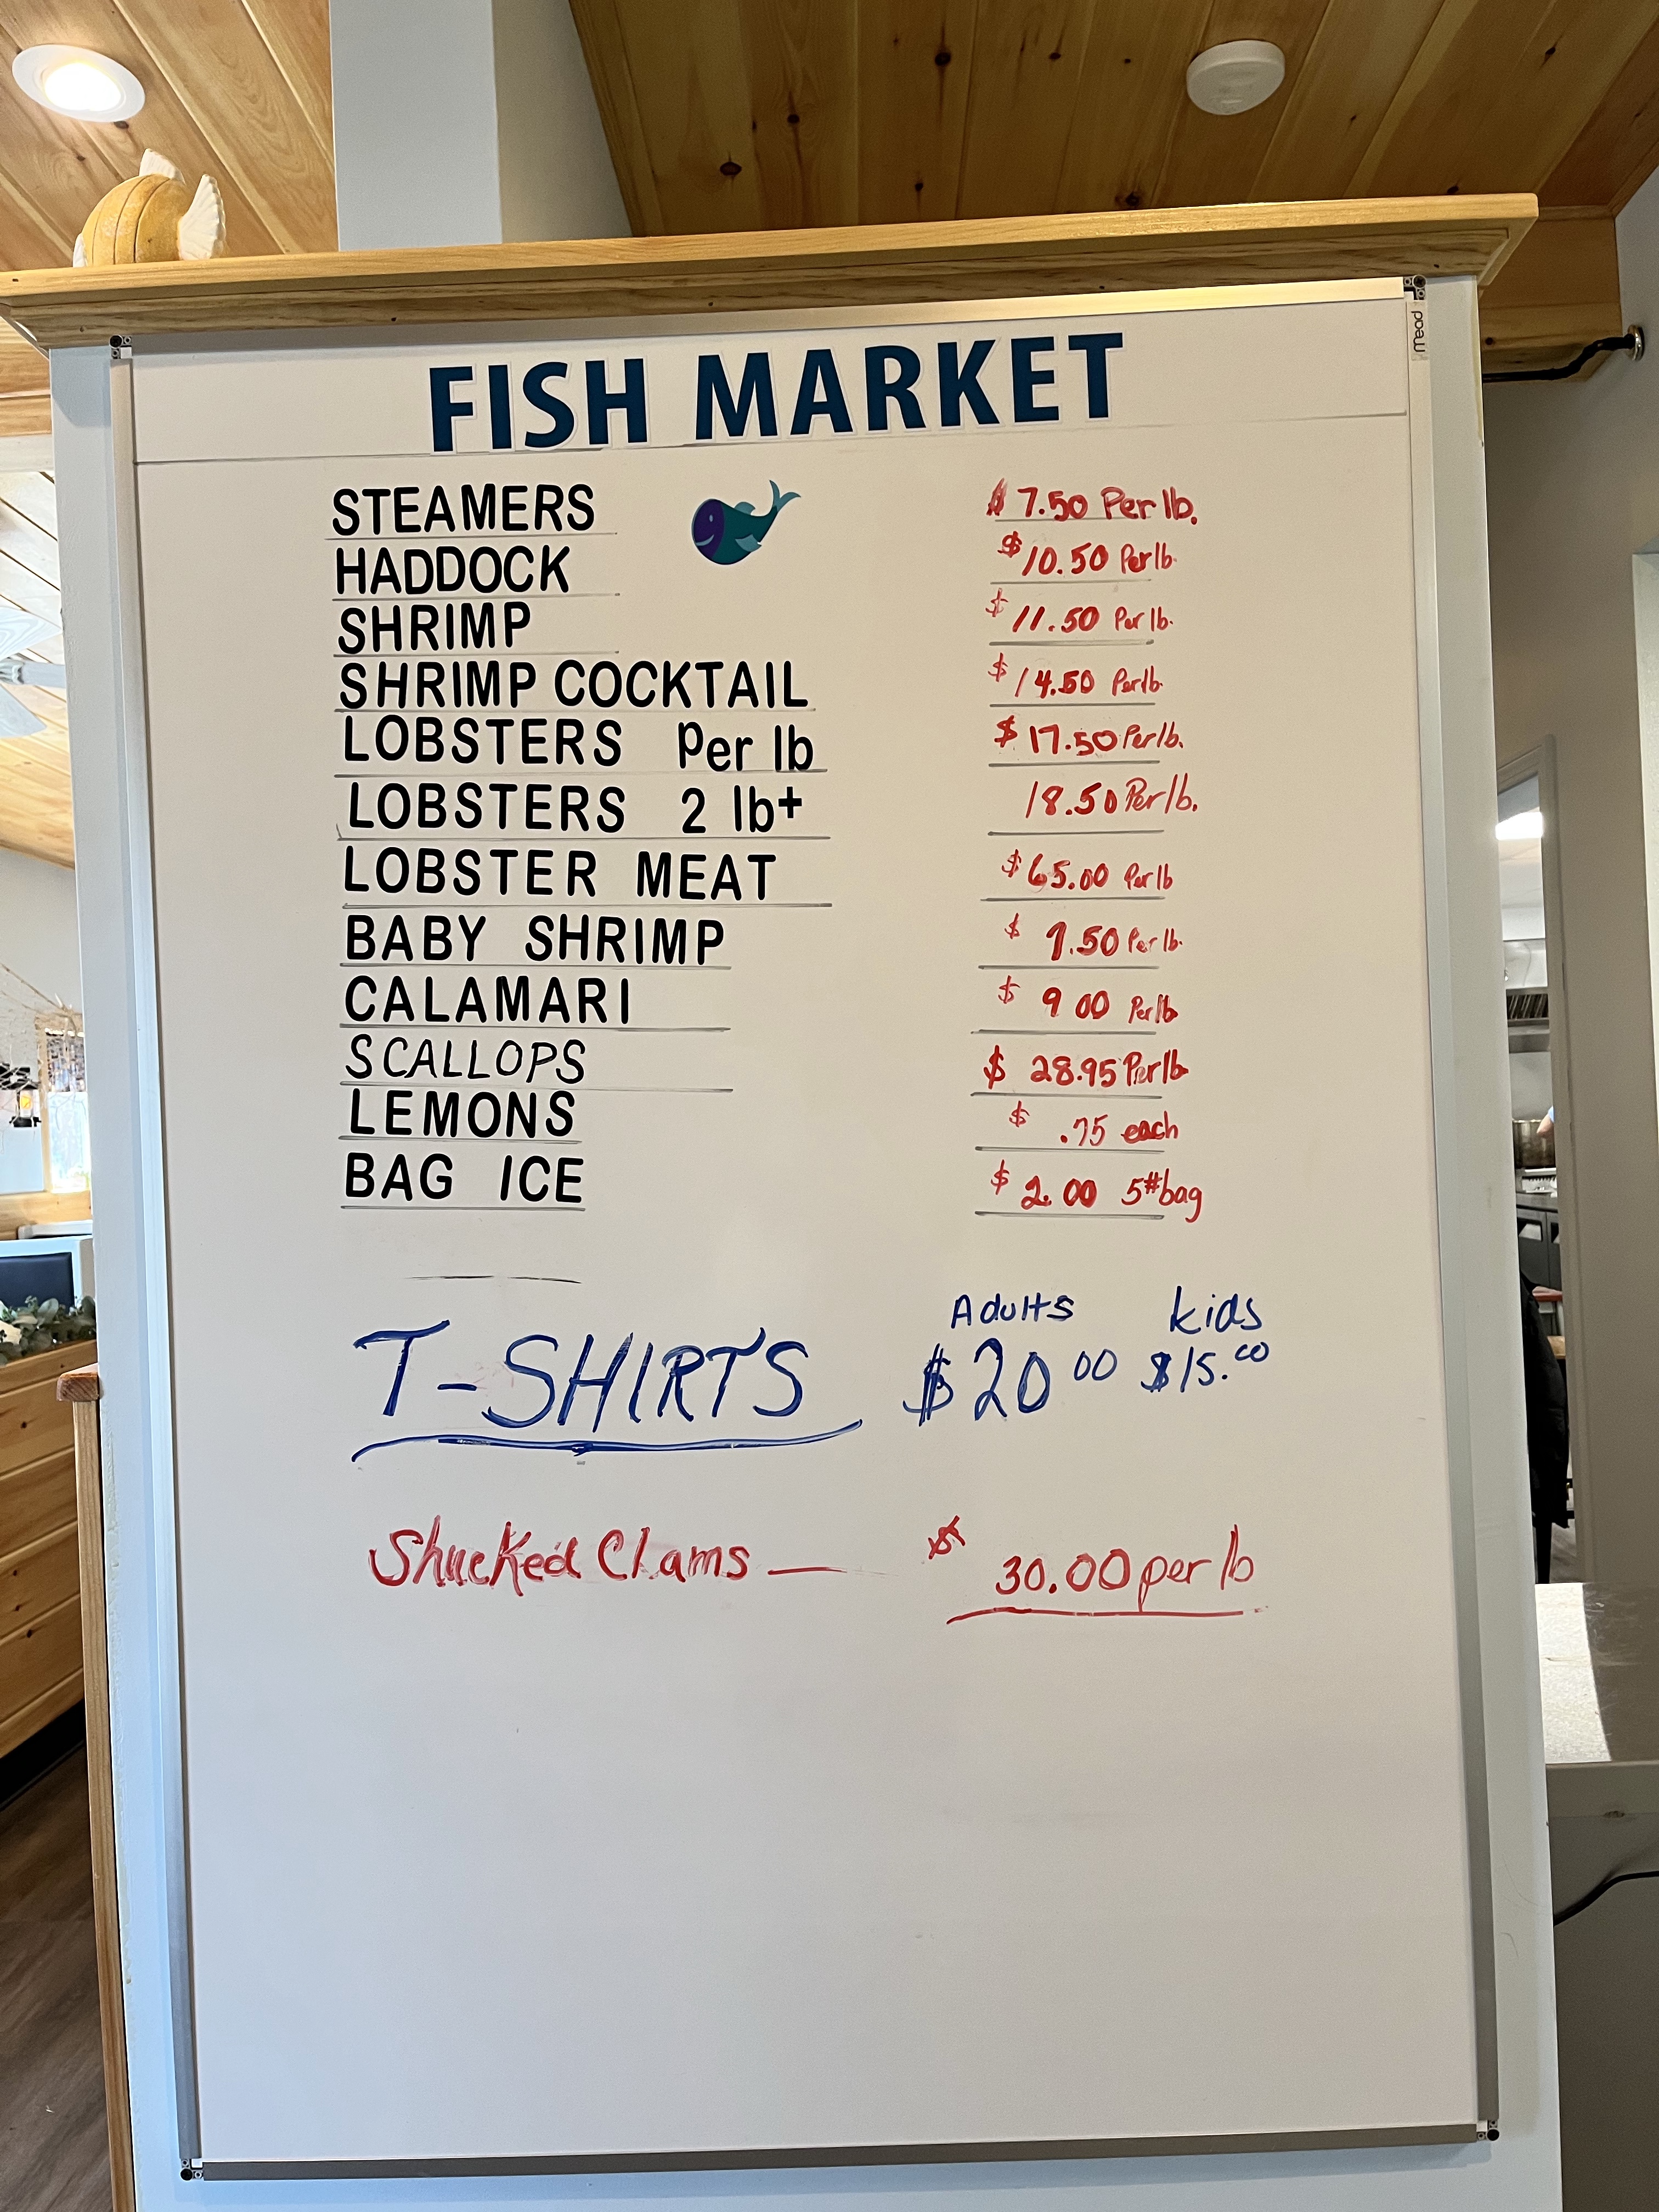 mead
FISH MARKET
STEAMERS $ 7.50 Per lb.
HADDOCK $ 10.50 Per lb.
SHRIMP $ 11.50 Per lb.
SHRIMP COCKTAIL $ 14.50 Per lb.
LOBSTERS Per lb $ 17.50 Per lb.
LOBSTERS 2 lb+ 18.50 Per lb.
LOBSTER MEAT $ 65.00 Per lb
BABY SHRIMP $ 9.50 Per lb.
CALAMARI $ 9 00 Per lb
SCALLOPS $ 28.95 Per lb
LEMONS $ .75 each
BAG ICE $ 2.00 5# bag
Adults kids
T-SHIRTS $20 00 $15.00
Shucked Clams — $ 30.00 per lb